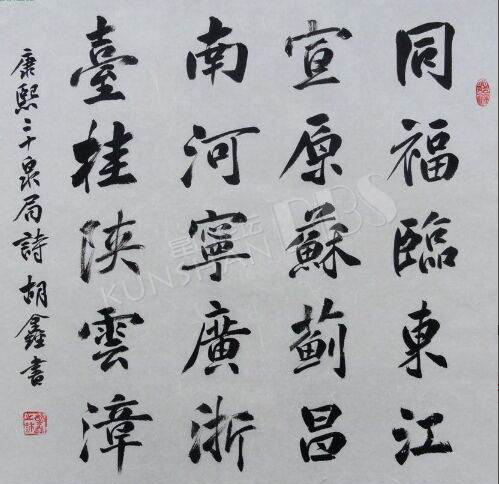 同福臨東江
宣原蘇薊昌
南河寧廣浙
臺桂陝雲漳
康熙二十泉局詩胡鑫書
KUNSHAN BBS